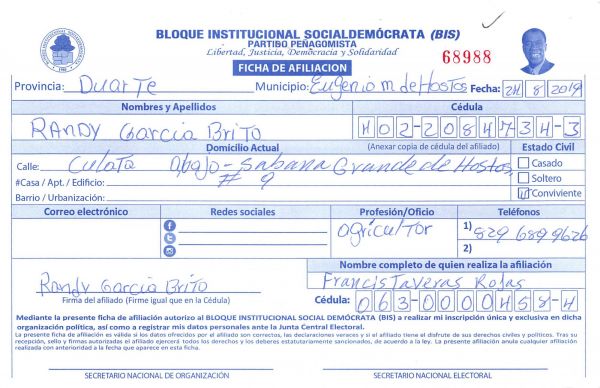 BLOQUE INSTITUCIONAL SOCIALDEMÓCRATA (BIS)
PARTIDO PEÑAGOMISTA
Libertad, Justicia, Democracia y Solidaridad
68988
FICHA DE AFILIACION
Provincia: Duarte Municipio: Eugenio m de Hostos Fecha: 24 8 2019
Nombres y Apellidos Cédula
RANDY Garcia Brito 402-2084734-3
Domicilio Actual (Anexar copia de cédula del afiliado) Estado Civil
Calle: Culata abajo - Sabana Grande de Hostos Casado
#Casa / Apt. / Edificio: # 9 Soltero
Barrio / Urbanización: Conviviente
Correo electrónico Redes sociales Profesión/Oficio Teléfonos
agricultor 1) 829 689 9626
2)
Nombre completo de quien realiza la afiliación
Randy Garcia Brito Francis Taveras Rojas
Firma del afiliado (Firme igual que en la Cédula) Cédula: 063-0000458-4
Mediante la presente ficha de afiliación autorizo al BLOQUE INSTITUCIONAL SOCIAL DEMÓCRATA (BIS) a realizar mi inscripción única y exclusiva en dicha
organización política, así como a registrar mis datos personales ante la Junta Central Electoral.
La presente ficha de afiliación es válida si los datos ofrecidos por el afiliado son correctos, las declaraciones veraces y si el afiliado tiene el disfrute de sus derechos civiles y políticos. Tras su
recepción, sello y firmas autorizadas el afiliado ejercerá todos los derechos y los deberes estatutariamente sancionados, de acuerdo a la ley. La presente afiliación anula cualquier afiliación
realizada con anterioridad a la fecha que aparece en esta ficha.
SECRETARIO NACIONAL DE ORGANIZACIÓN SECRETARIO NACIONAL ELECTORAL